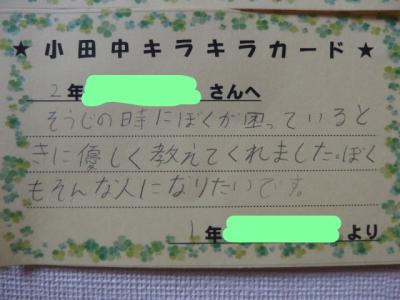 ★小田中キラキラカード★
2年 さんへ
そうじの時にぼくが困っていると
きに優しく教えてくれました。ぼく
もそんな人になりたいです。
1年 より